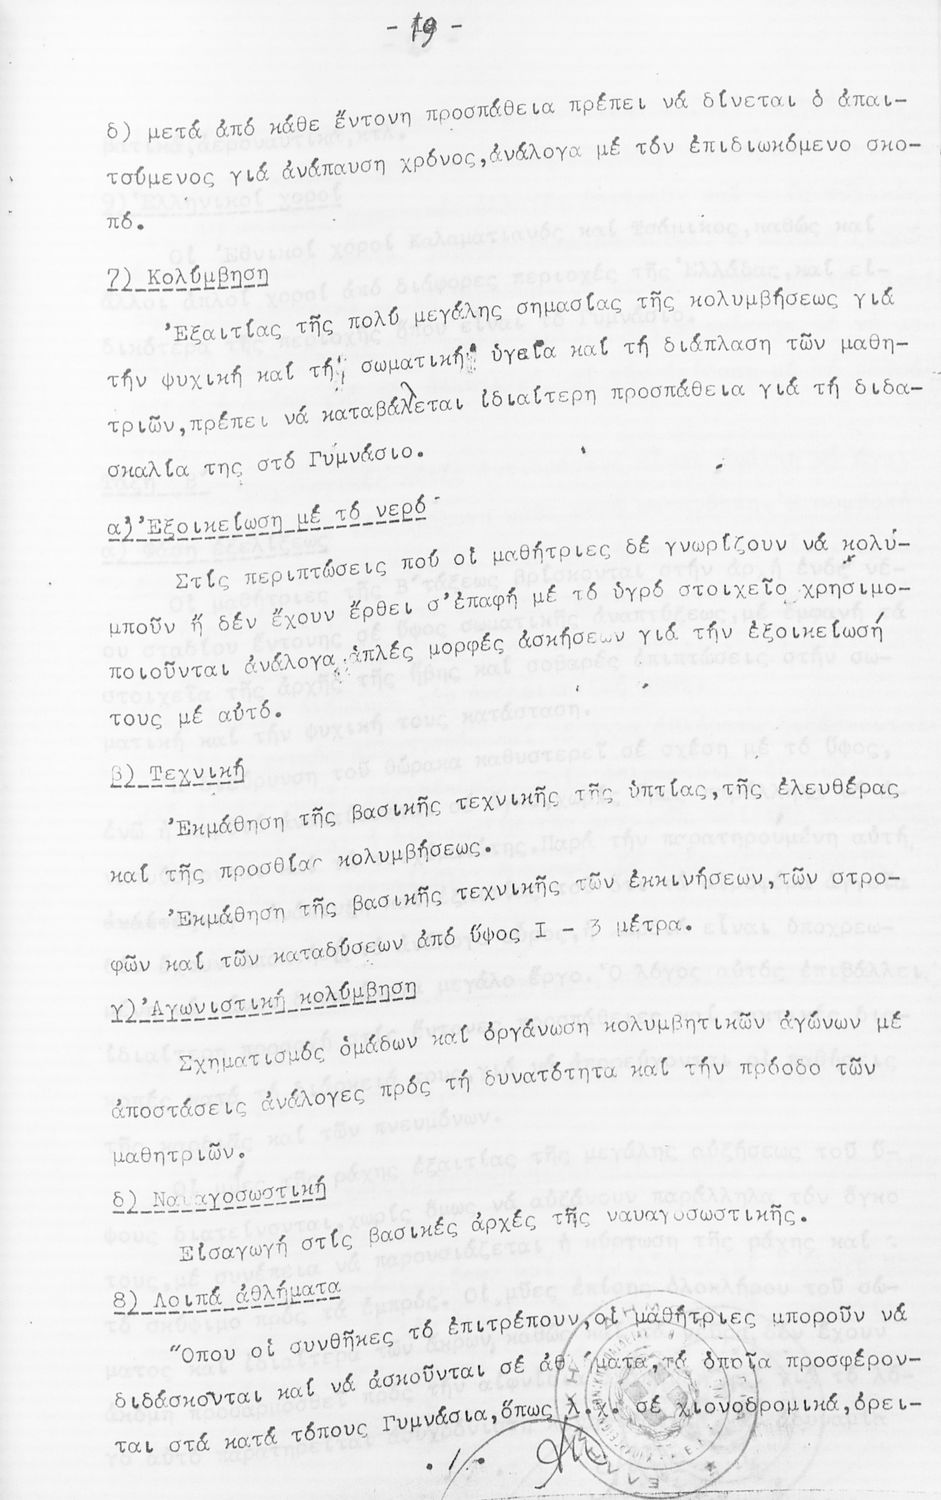 - 19 -
δ) μετά ἀπό κάθε ἔντονη προσπάθεια πρέπει νά δίνεται ὁ ἀπαι-
τούμενος γιά ἀνάπαυση χρόνος,ἀνάλογα μέ τόν ἐπιδιωκόμενο σκο-
πό.
7) Κολύμβηση
Ἐξαιτίας τῆς πολύ μεγάλης σημασίας τῆς κολυμβήσεως γιά
τήν ψυχική καί τή σωματική ὑγεία καί τή διάπλαση τῶν μαθη-
τριῶν,πρέπει νά καταβάλλεται ἰδιαίτερη προσπάθεια γιά τή διδα-
σκαλία της στό Γυμνάσιο.
α) Ἐξοικείωση μέ τό νερό
Στίς περιπτώσεις πού οἱ μαθήτριες δέ γνωρίζουν νά κολύ-
μποῦν ἤ δέν ἔχουν ἔρθει σ'ἐπαφή μέ τό ὑγρό στοιχεῖο χρησιμο-
ποιοῦνται ἀνάλογα ἁπλές μορφές ἀσκήσεων γιά τήν ἐξοικείωσή
τους μέ αὐτό.
β) Τεχνική
Ἐκμάθηση τῆς βασικῆς τεχνικῆς τῆς ὑπτίας,τῆς ἐλευθέρας
καί τῆς προσθίας κολυμβήσεως.
Ἐκμάθηση τῆς βασικῆς τεχνικῆς τῶν ἐκκινήσεων,τῶν στρο-
φῶν καί τῶν καταδύσεων ἀπό ὕψος I - 3 μέτρα.
γ) Ἀγωνιστική κολύμβηση
Σχηματισμός ὁμάδων καί ὀργάνωση κολυμβητικῶν ἀγώνων μέ
ἀποστάσεις ἀνάλογες πρός τή δυνατότητα καί τήν πρόοδο τῶν
μαθητριῶν.
δ) Ναυαγοσωστική
Εἰσαγωγή στίς βασικές ἀρχές τῆς ναυαγοσωστικῆς.
8) Λοιπά ἀθλήματα
Ὅπου οἱ συνθῆκες τό ἐπιτρέπουν,οἱ μαθήτριες μποροῦν νά
διδάσκονται καί νά ἀσκοῦνται σέ ἀθλήματα,τά ὁποῖα προσφέρον-
ται στά κατά τόπους Γυμνάσια,ὅπως λ.χ. σέ χιονοδρομικά,ὀρει-
./.